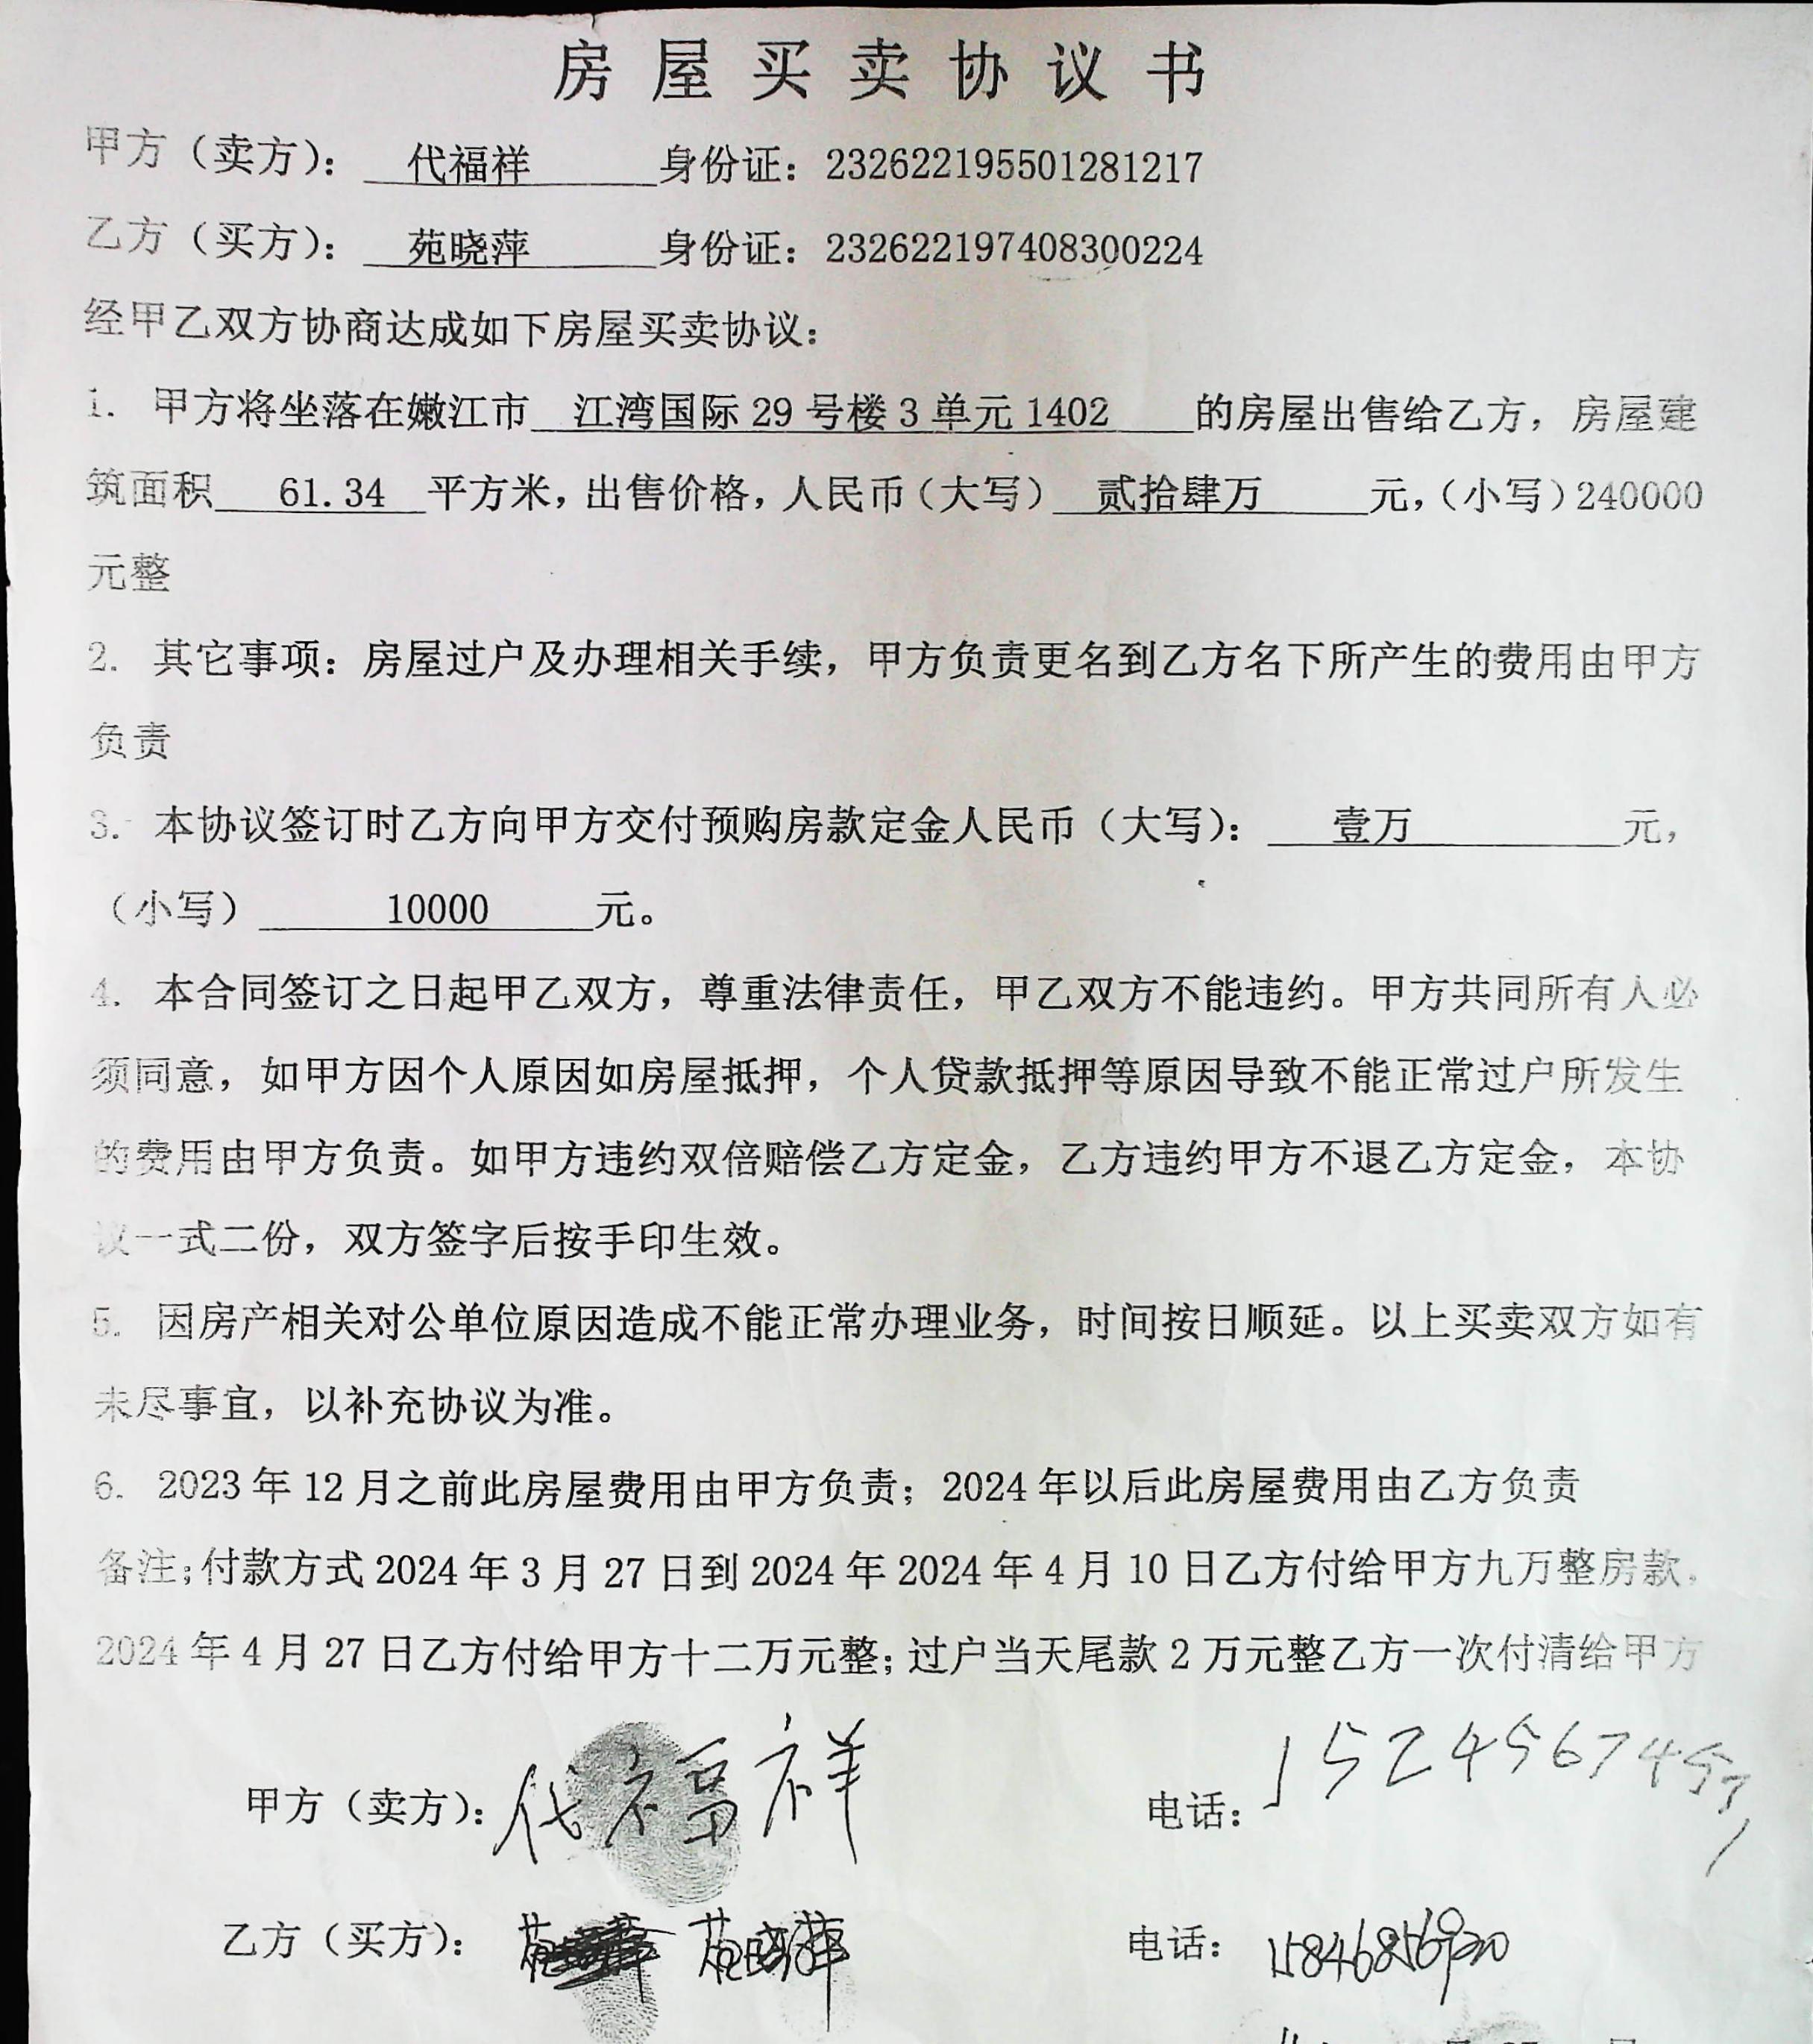 房屋买卖协议书
甲方（卖方）： 代福祥 身份证：232622195501281217
乙方（买方）： 苑晓萍 身份证：232622197408300224
经甲乙双方协商达成如下房屋买卖协议：
1. 甲方将坐落在嫩江市 江湾国际29号楼3单元1402 的房屋出售给乙方，房屋建
筑面积 61.34 平方米，出售价格，人民币（大写） 贰拾肆万 元，（小写）240000
元整
2. 其它事项：房屋过户及办理相关手续，甲方负责更名到乙方名下所产生的费用由甲方
负责
3. 本协议签订时乙方向甲方交付预购房款定金人民币（大写）： 壹万 元，
（小写） 10000 元。
4. 本合同签订之日起甲乙双方，尊重法律责任，甲乙双方不能违约。甲方共同所有人必
须同意，如甲方因个人原因如房屋抵押，个人贷款抵押等原因导致不能正常过户所发生
的费用由甲方负责。如甲方违约双倍赔偿乙方定金，乙方违约甲方不退乙方定金，本协
议一式二份，双方签字后按手印生效。
5. 因房产相关对公单位原因造成不能正常办理业务，时间按日顺延。以上买卖双方如有
未尽事宜，以补充协议为准。
6. 2023年12月之前此房屋费用由甲方负责；2024年以后此房屋费用由乙方负责
备注；付款方式2024年3月27日到2024年2024年4月10日乙方付给甲方九万整房款，
2024年4月27日乙方付给甲方十二万元整；过户当天尾款2万元整乙方一次付清给甲方
甲方（卖方）：代福祥 电话：
乙方（买方）： 苑晓萍 电话：